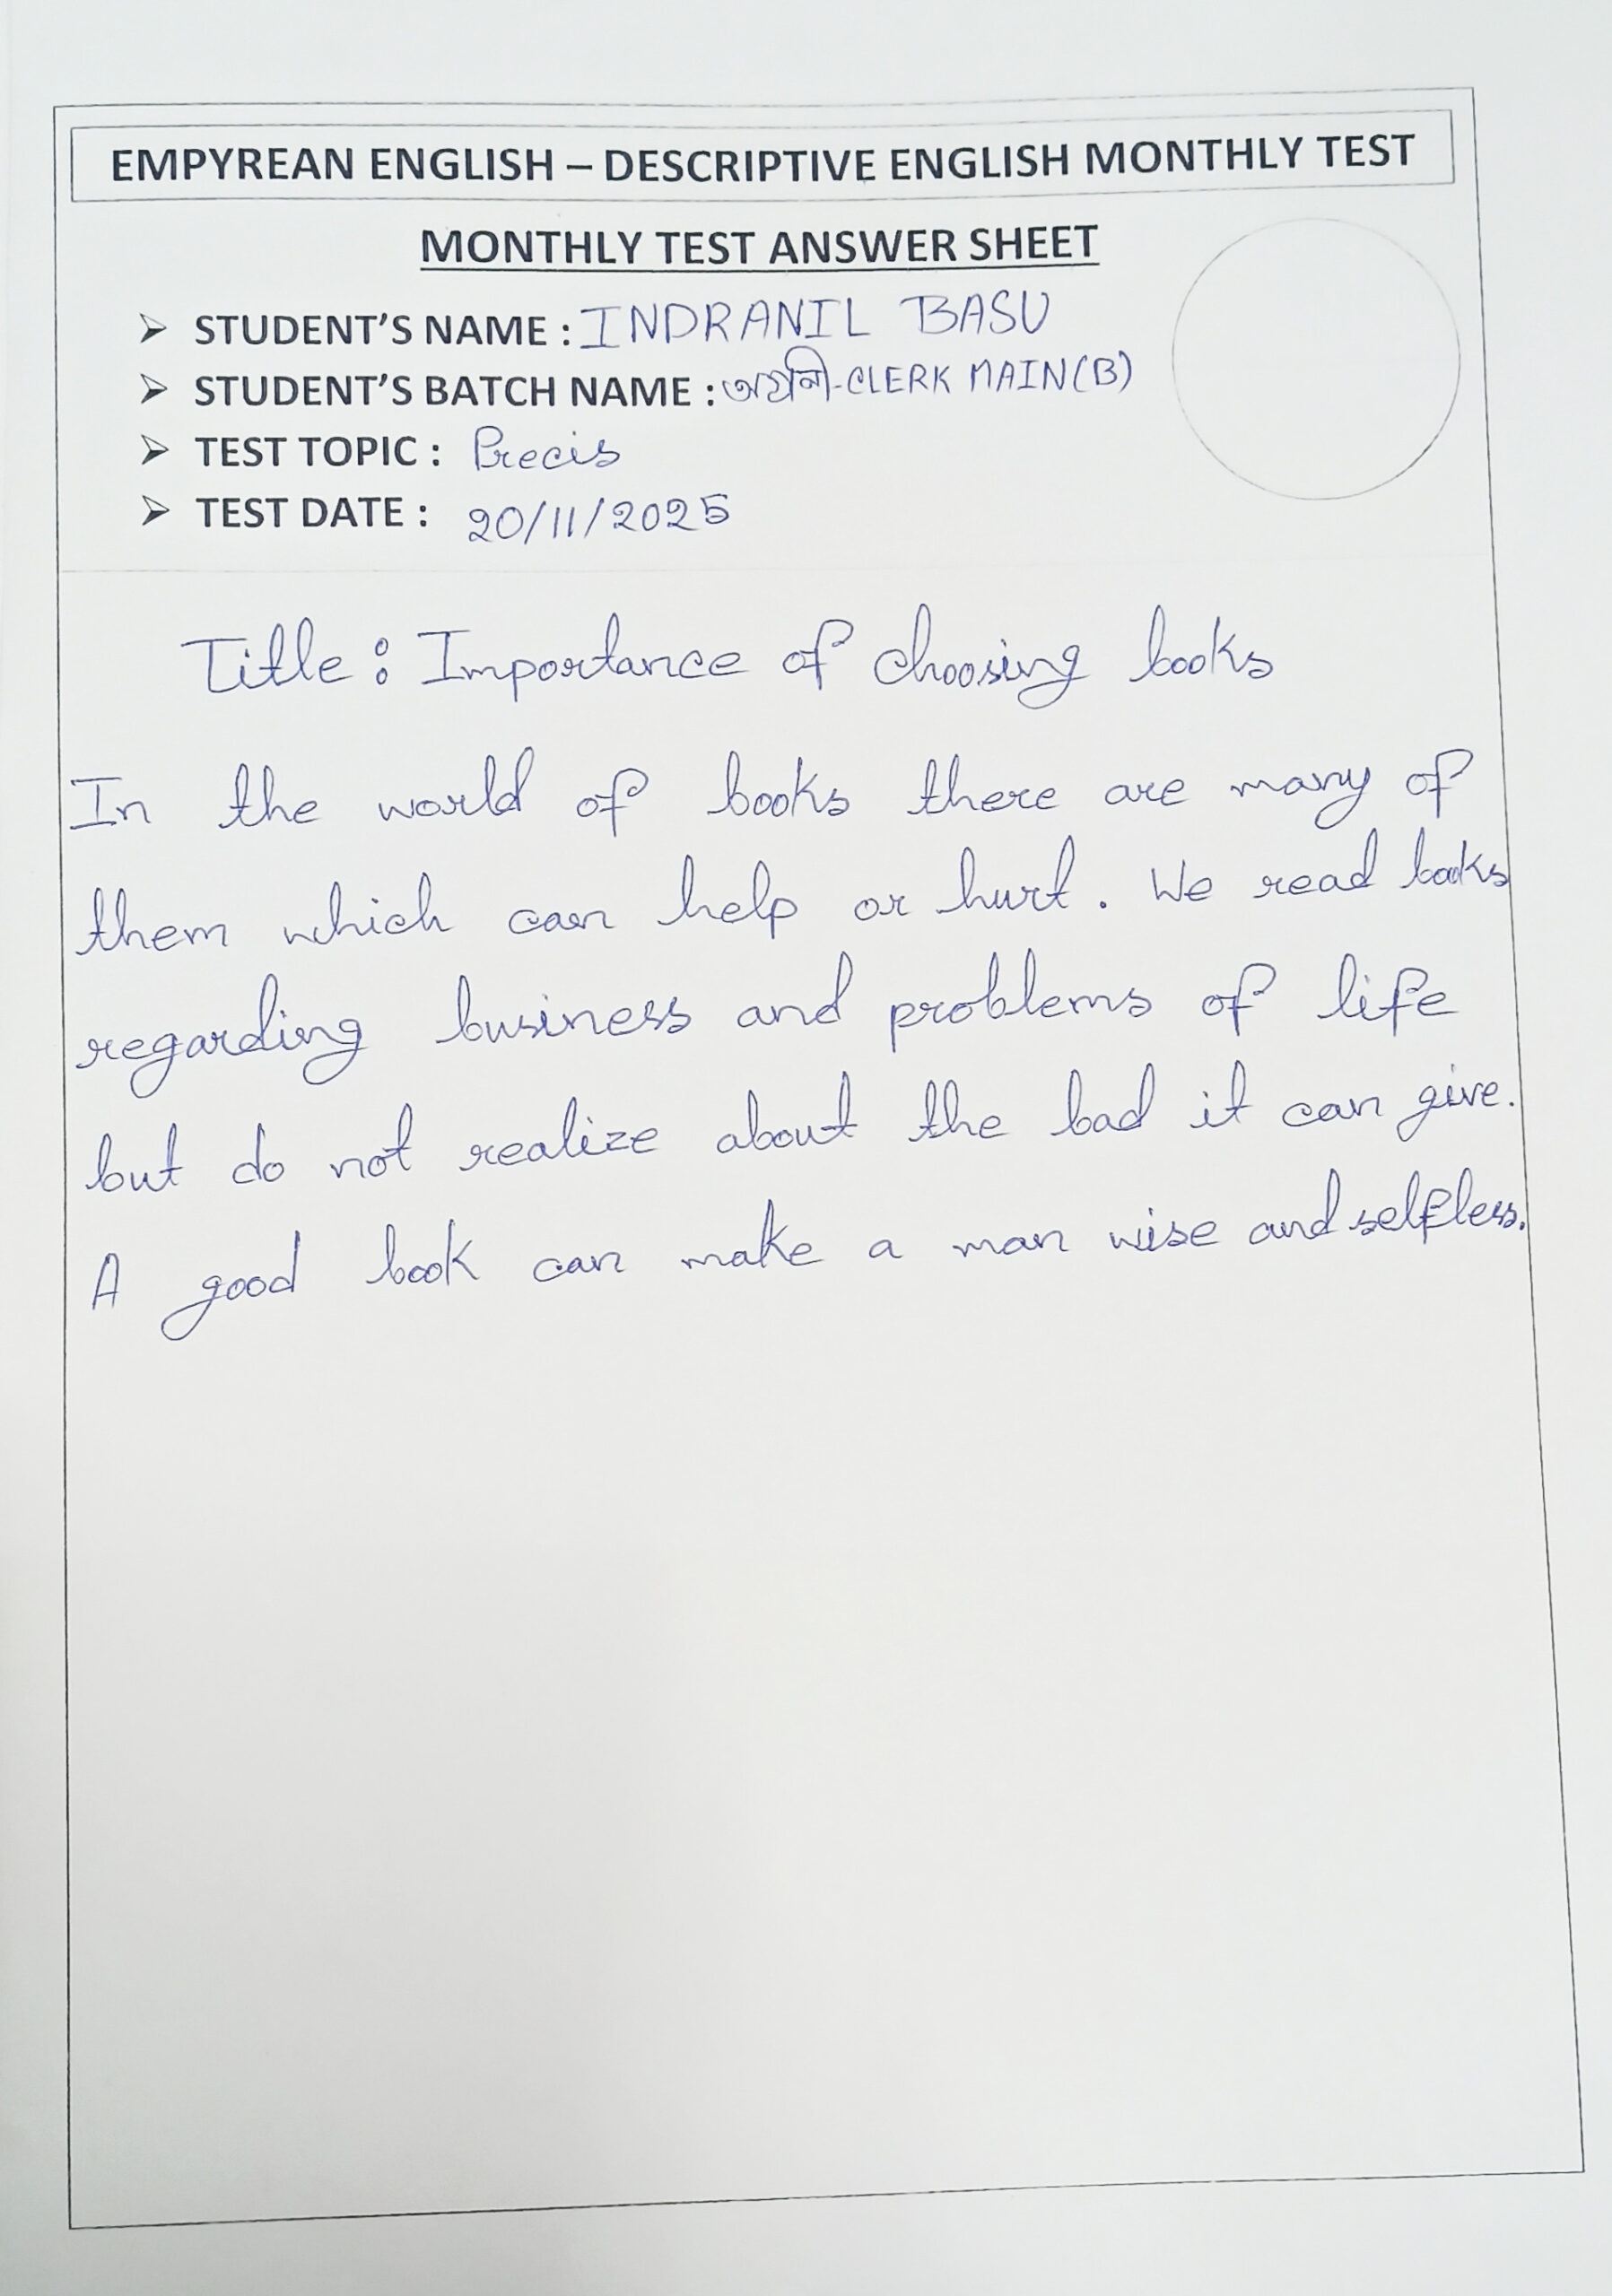 EMPYREAN ENGLISH – DESCRIPTIVE ENGLISH MONTHLY TEST
MONTHLY TEST ANSWER SHEET
➢ STUDENT'S NAME : INDRANIL BASU
➢ STUDENT'S BATCH NAME : অগ্রনী-CLERK MAIN(B)
➢ TEST TOPIC : Precis
➢ TEST DATE : 20/11/2025
Title : Importance of choosing books
In the world of books there are many of
them which can help or hurt. We read books
regarding business and problems of life
but do not realize about the bad it can give.
A good book can make a man wise and selfless.